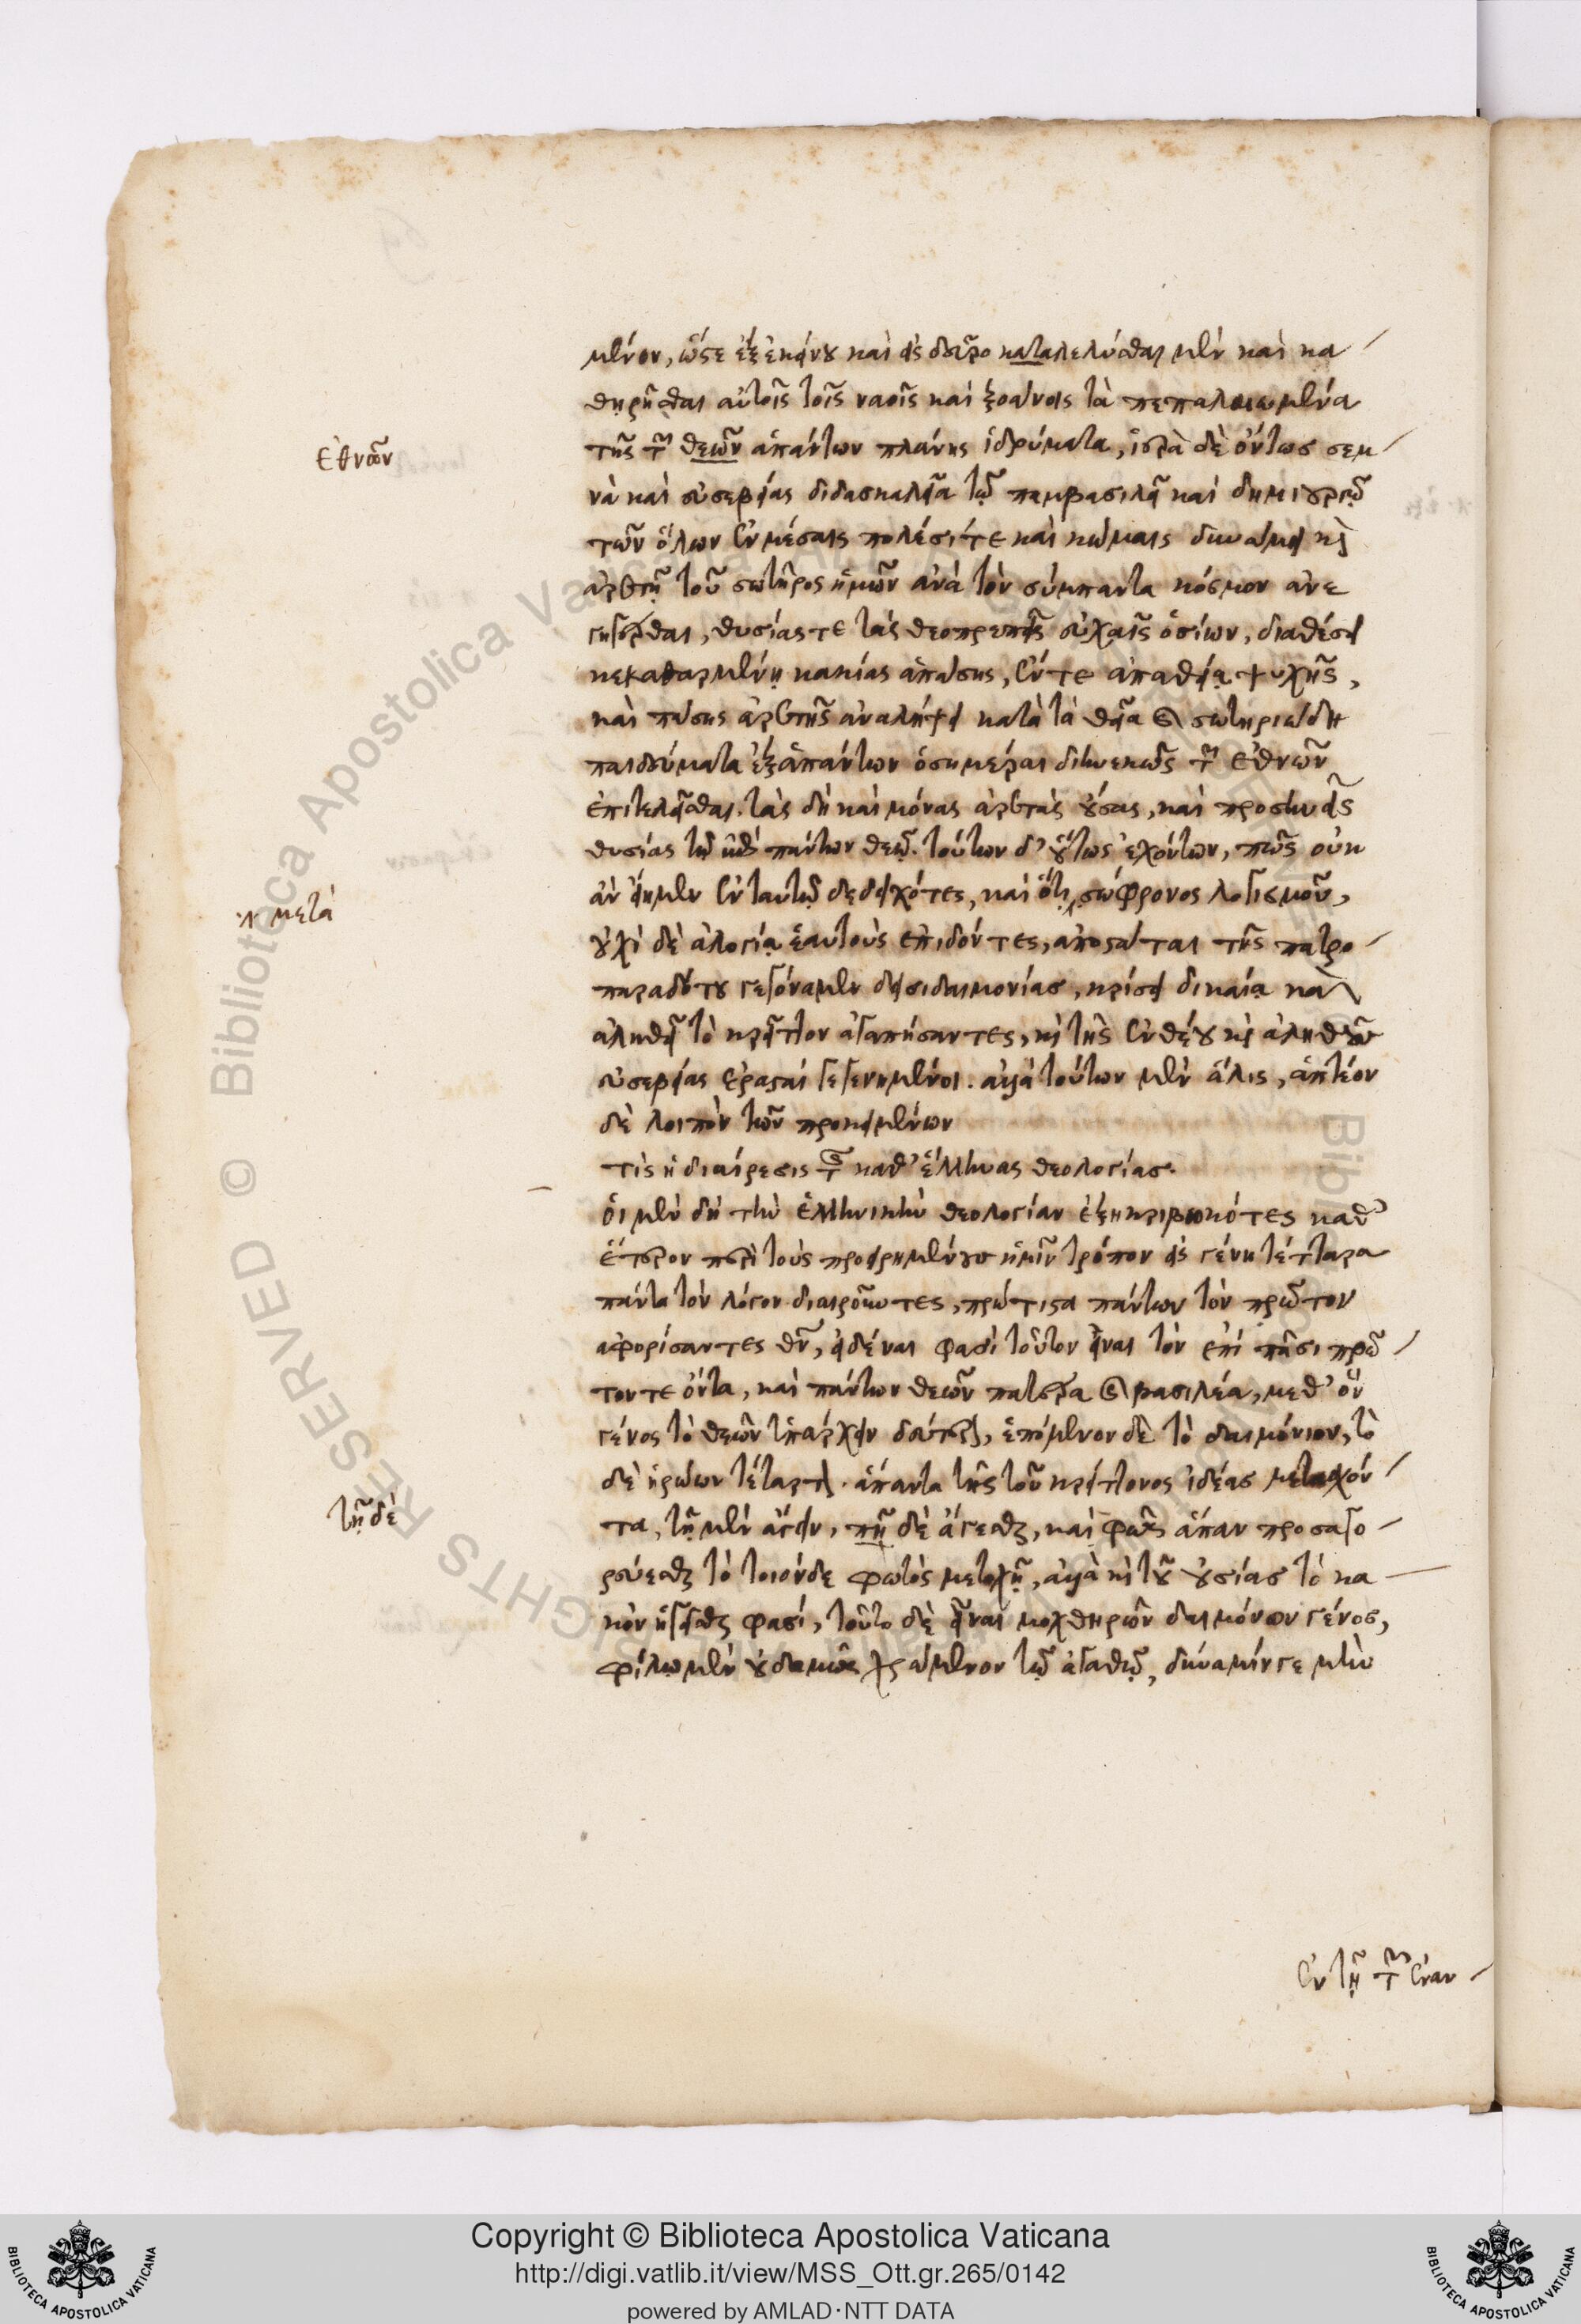 μένον, ὥστε ἐξ ἐκείνου καὶ εἰς δεῦρο καταλελύσθαι μὲν καὶ κα
θηρῆσθαι αὐτοῖς τοῖς ναοῖς καὶ ξοάνοις τὰ πεπαλαιωμένα
τῆς τῶν θεῶν ἁπάντων πλάνης ἱδρύματα, ἱερὰ δὲ ὄντως σεμ
ἐθνῶν
νὰ καὶ εὐσεβείας διδασκαλεῖα τῷ παμβασιλεῖ καὶ δημιουργῷ
τῶν ὅλων ἐν μέσαις πόλεσί τε καὶ κώμαις δυνάμει καὶ
ἀρετῇ τοῦ σωτῆρος ἡμῶν ἀνὰ τὸν σύμπαντα κόσμον ἀνε
γηγέρθαι, θυσίας τε τὰς θεοπρεπεῖς εὐχαῖς ὁσίων, διαθέσει
κεκαθαρμένῃ κακίας ἁπάσης, ἔν τε ἀπαθείᾳ ψυχῆς,
καὶ πάσης ἀρετῆς ἀναλήψει κατὰ τὰ θεῖα καὶ σωτηριώδη
παιδεύματα ἐξ ἁπάντων ὁσημέραι διηνεκῶς τῶν ἐθνῶν
ἐπιτελεῖσθαι. τὰς δὴ καὶ μόνας ἀρεστὰς οὔσας, καὶ προσηνεῖς
θυσίας τῷ ἐπὶ πάντων θεῷ. τούτων δ' οὕτως ἐχόντων, πῶς οὐκ
ἂν εἴημεν ἐν ταυτῷ δεδειχότες, καὶ ὅτι σώφρονος λογισμοῦ,
ἢ μετὰ
οὐχὶ δὲ ἀλογίᾳ ἑαυτοὺς ἐπιδόντες, ἀποστάται τῆς πατρο
παραδότου γεγόναμεν δεισιδαιμονίας, κρίσει δικαίᾳ καὶ
ἀληθεῖ τὸ κρεῖττον ἀγαπήσαντες, καὶ τῆς ἐνθέου καὶ ἀληθοῦς
εὐσεβείας ἐρασταὶ γεγενημένοι. ἀλλὰ τούτων μὲν ἅλις, ἁπτέον
δὲ λοιπὸν τῶν προκειμένων
τίς ἡ διαίρεσις τῆς καθ' ἕλληνας θεολογίας.
οἱ μὲν δὴ τὴν ἑλληνικὴν θεολογίαν ἐξηκριβωκότες καθ'
ἕτερον περὶ τοὺς προειρημένους ἡμῖν τρόπον εἰς γένη τέτταρα
πάντα τὸν λόγον διαιροῦντες, πρώτιστα πάντων τὸν πρῶτον
ἀφορίσαντες θεὸν, εἰδέναι φασὶ τοῦτον εἶναι τὸν ἐπὶ πᾶσι πρῶ
τόν τε ὄντα, καὶ πάντων θεῶν πατέρα καὶ βασιλέα, μεθ' ὃν
γένος τὸ θεῶν ὑπάρχειν δεύτερον, ἑπόμενον δὲ τὸ δαιμόνιον, τὸ
δὲ ἡρώων τέταρτον. ἅπαντα τῆς τοῦ κρείττονος ἰδέας μετασχόν
τα, τῇ μὲν ἄγειν, πῇ δὲ ἄγεσθαι, καὶ φῶς ἅπαν προσαγο
τῇ δὲ
ρεύεσθαι τὸ τοιόνδε φωτὸς μετοχῇ, ἀλλὰ καὶ τοῦ οὐσίας τὸ κα
κὸν ἡγεῖσθαι φασί, τοῦτο δὲ εἶναι μοχθηρῶν δαιμόνων γένος,
φίλῳ μὲν οὐδαμῶς χρώμενον τῷ ἀγαθῷ, δύναμίν γε μὴν
ἐν τῇ τῶν ἐναν
Copyright © Biblioteca Apostolica Vaticana
http://digi.vatlib.it/view/MSS_Ott.gr.265/0142
powered by AMLAD·NTT DATA